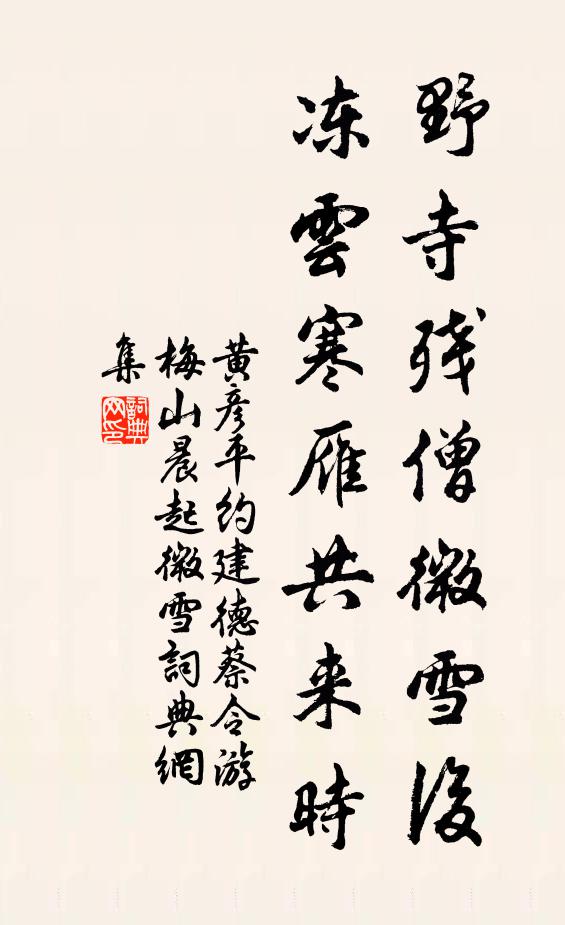 野寺残僧微雪後
冻雲寒雁共来時
黄彦平约建德蔡令游
梅山晨起微雪詞典網
集
詞典
网印